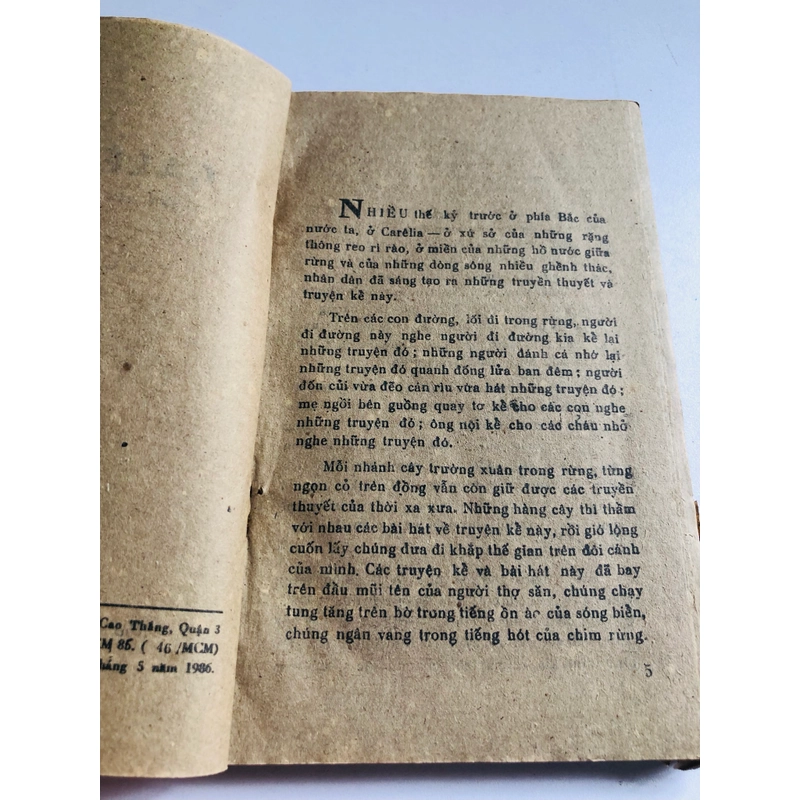 Cao Thắng, Quận 3
M 85. ( 46 /MCM)
háng 5 năm 1986.
NHIỀU thế kỷ trước ở phía Bắc của
nước ta, ở Carêlia — ở xứ sở của những rặng
thông reo rì rào, ở miền của những hồ nước giữa
rừng và của những dòng sông nhiều ghềnh thác,
nhân dân đã sáng tạo ra những truyền thuyết và
truyện kể này.
Trên các con đường, lối đi trong rừng, người
đi đường này nghe người đi đường kia kể lại
những truyện đó ; những người đánh cá nhớ lại
những truyện đó quanh đống lửa ban đêm ; người
đốn củi vừa đẽo cán rìu vừa hát những truyện đó ;
mẹ ngồi bên guồng quay tơ kể cho các con nghe
những truyện đó ; ông nội kể cho các cháu nhỏ
nghe những truyện đó.
Mỗi nhánh cây trường xuân trong rừng, từng
ngọn cỏ trên đồng vẫn còn giữ được các truyền
thuyết của thời xa xưa. Những hàng cây thì thầm
với nhau các bài hát về truyện kể này, rồi gió lộng
cuốn lấy chúng đưa đi khắp thế gian trên đôi cánh
của mình. Các truyện kể và bài hát này đã bay
trên đầu mũi tên của người thợ săn, chúng chạy
tung tăng trên bờ trong tiếng ồn ào của sóng biển,
chúng ngân vang trong tiếng hót của chim rừng.
5